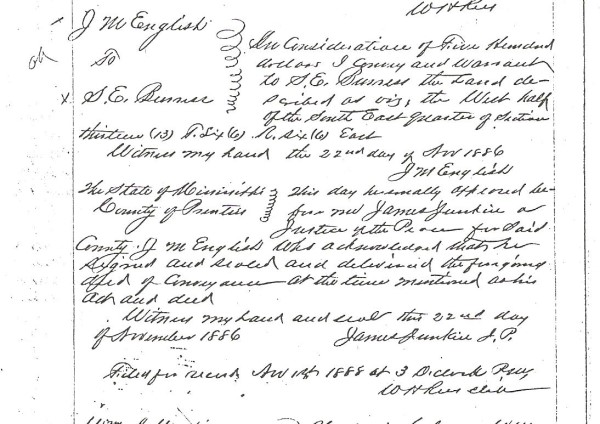 W H Rees
J M English
To
S. E. Burness
In Consideration of Five Hundred
dollars I Convey and Warrant
to S. E. Burness the land de-
scribed as viz, the West half
of the South East quarter of Section
thirteen (13) T. Six (6) R. Six (6) East
Witness my hand the 22nd day of Nov 1886
J M English
The State of Mississippi
County of Prentiss
This day personally appeared be-
fore me James Junkin a
Justice of the Peace for Said
County J M English who acknowledged that he
signed and sealed and delivered the foregoing
deed of Conveyance at the time mentioned as his
act and deed
Witness my hand and seal this 22nd day
of November 1886
James Junkin J. P.
Filed for record Nov 1st 1888 at 3 Oclock
W H Rees clerk